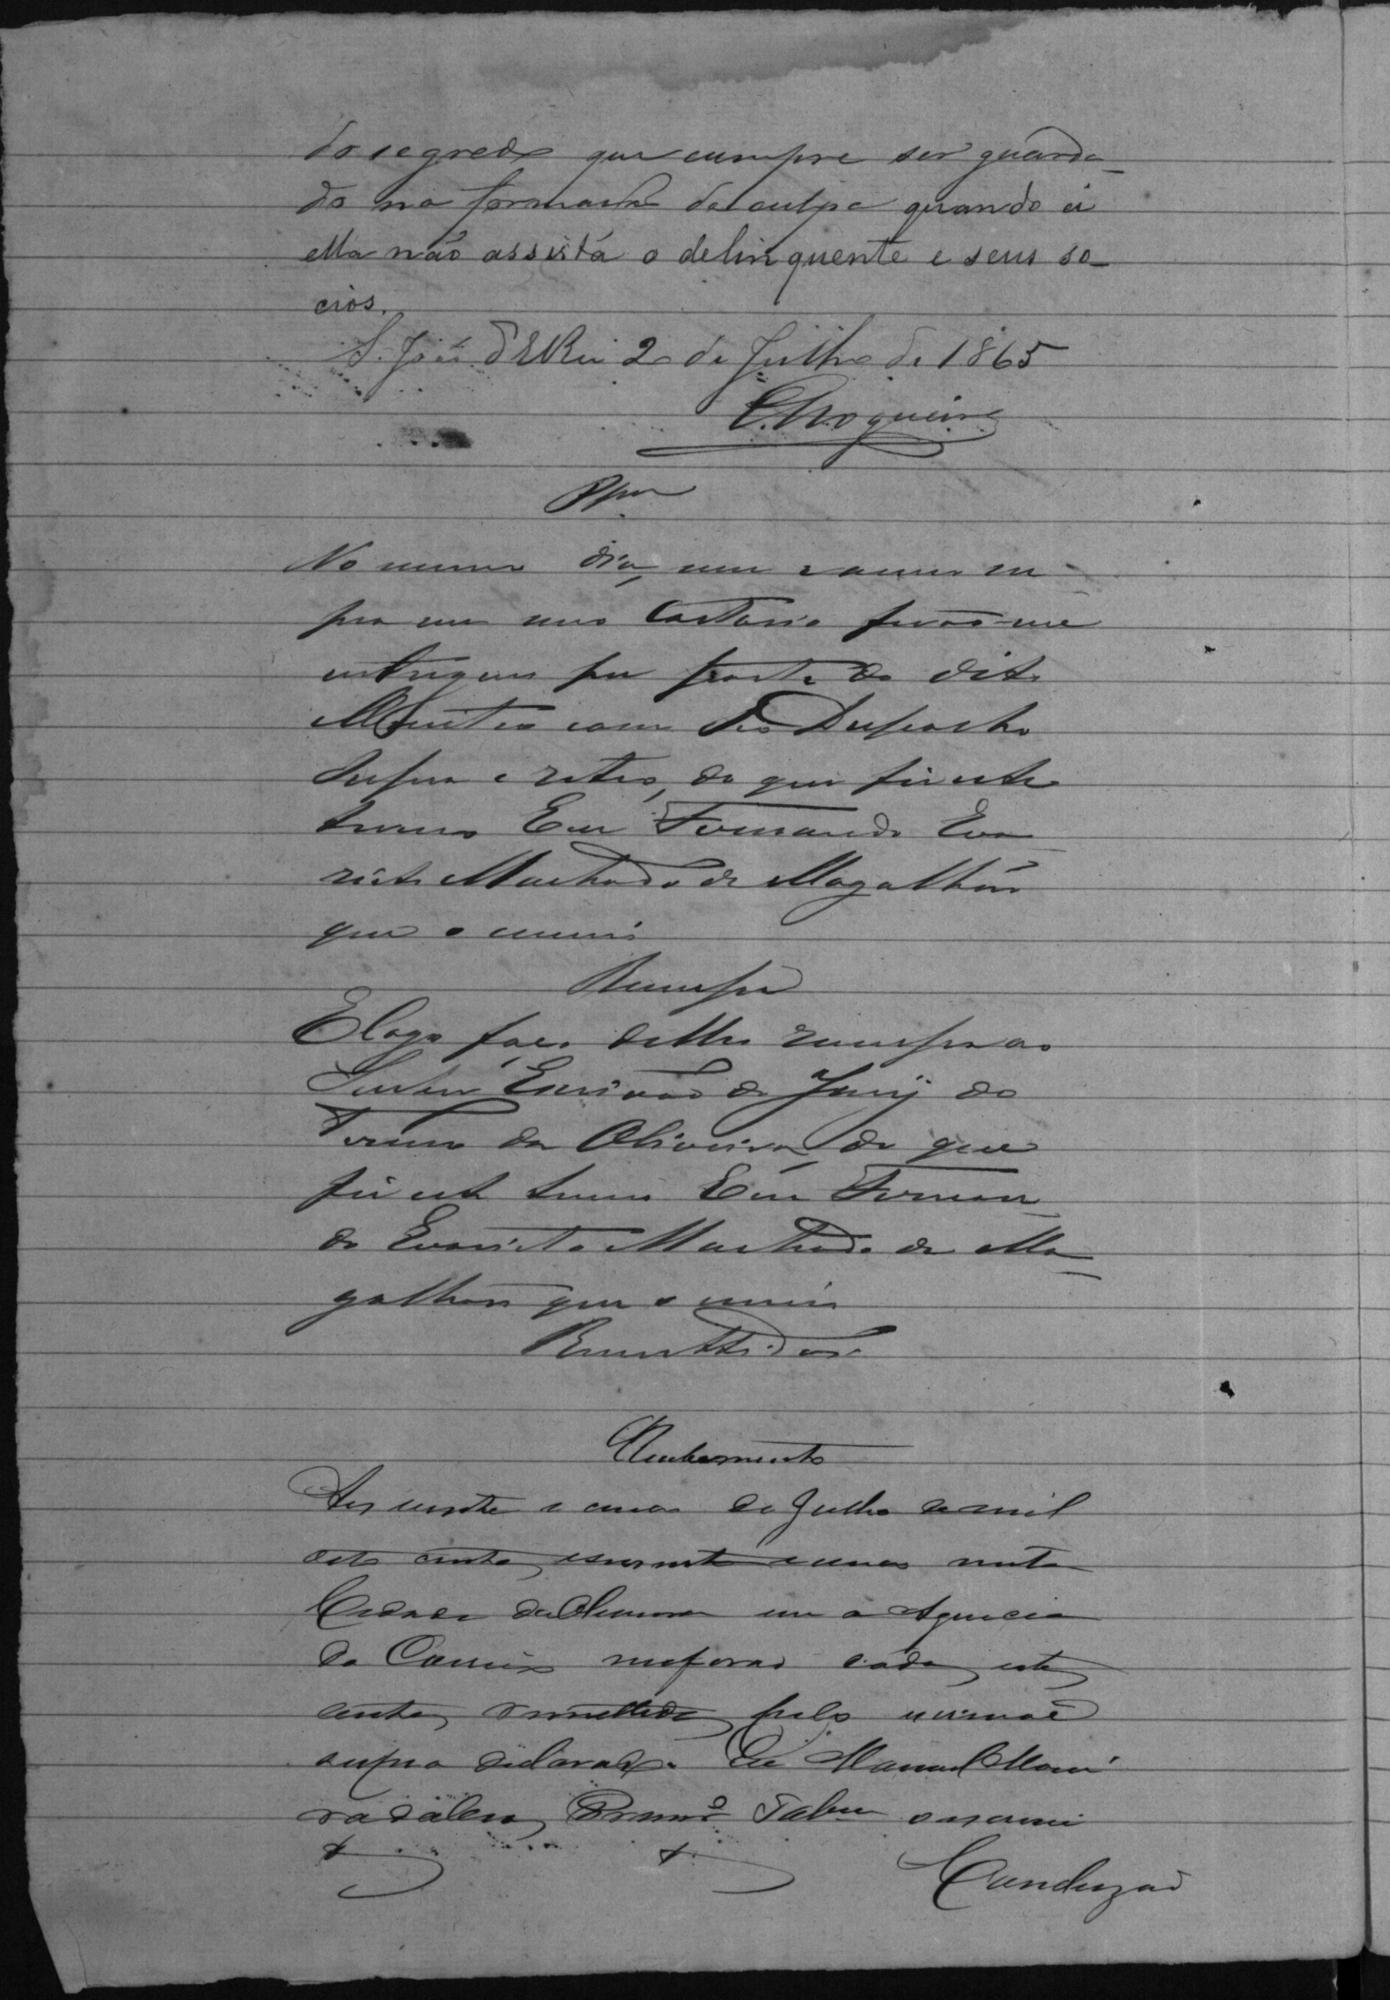 do segredo que cumpre ser guarda-
do na formação da culpa quando á
ella não assista o delinquente e seus so-
cios.
S. João d'ElRei 20 de Julho de 1865
C. Nogueira
No mesmo dia, mez e anno su-
pra em meu Cartorio forão-me
entregues por parte do dito
Ministro com seo Despacho
supra e retro, do que fiz este
termo Eu Fernando Eva-
risto Machado de Magalhães
que o escrevi
Remessa
E logo faço delles remessa ao
Escrivão do Jury do
Termo da Oliveira, do que
fiz este termo Eu Fernan-
do Evaristo Machado de Ma-
galhães que o escrevi
Remettidos.
Recebimento
Aos vinte e cinco de Julho de mil
oito centos, e sessenta e cinco nesta
Cidade da Oliveira em a Agencia
do Correio me forão dados, estes
autos, remettidos pelo escrivão
supra declarado. Eu Manoel
Prim.º Tabm o escrevi
Concluzão